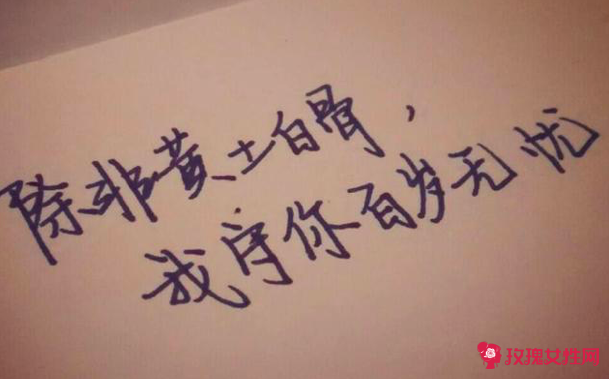 除非黄土白骨，
我守你百岁无忧
玫瑰女性网